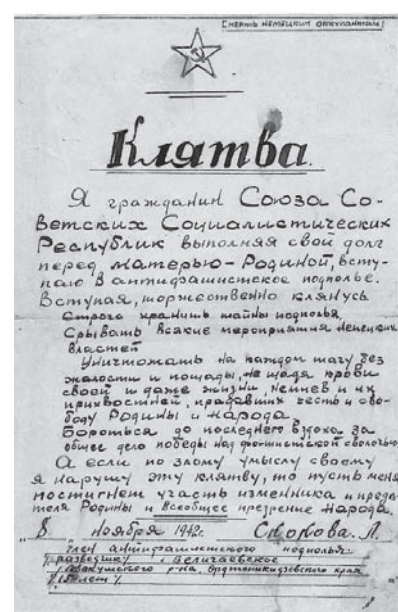 Смерть немецким оккупантам!
Клятва.
Я гражданин Союза Со-
ветских Социалистических
Республик выполняя свой долг
перед матерью-Родиной, всту-
паю в антифашистское подполье.
Вступая, торжественно клянусь
Строго хранить тайны подполья.
Срывать всякие мероприятия немецких
властей
Уничтожать на каждом шагу без
жалости и пощады, не щадя крови
своей и даже жизни, немцев и их
прихвостней, предавших честь и сво-
боду Родины и народа.
Бороться до последнего вздоха за
общее дело победы над фашистской сволочью.
А если по злому умыслу своему
я нарушу эту клятву, то пусть меня
постигнет участь изменника и преда-
теля Родины и всеобщее презрение народа.
"8" ноября 1942г. Скокова. Л.
Член антифашистского подполья.
разведчик с. Величаевское
района Орджоникидзевского края
15 лет